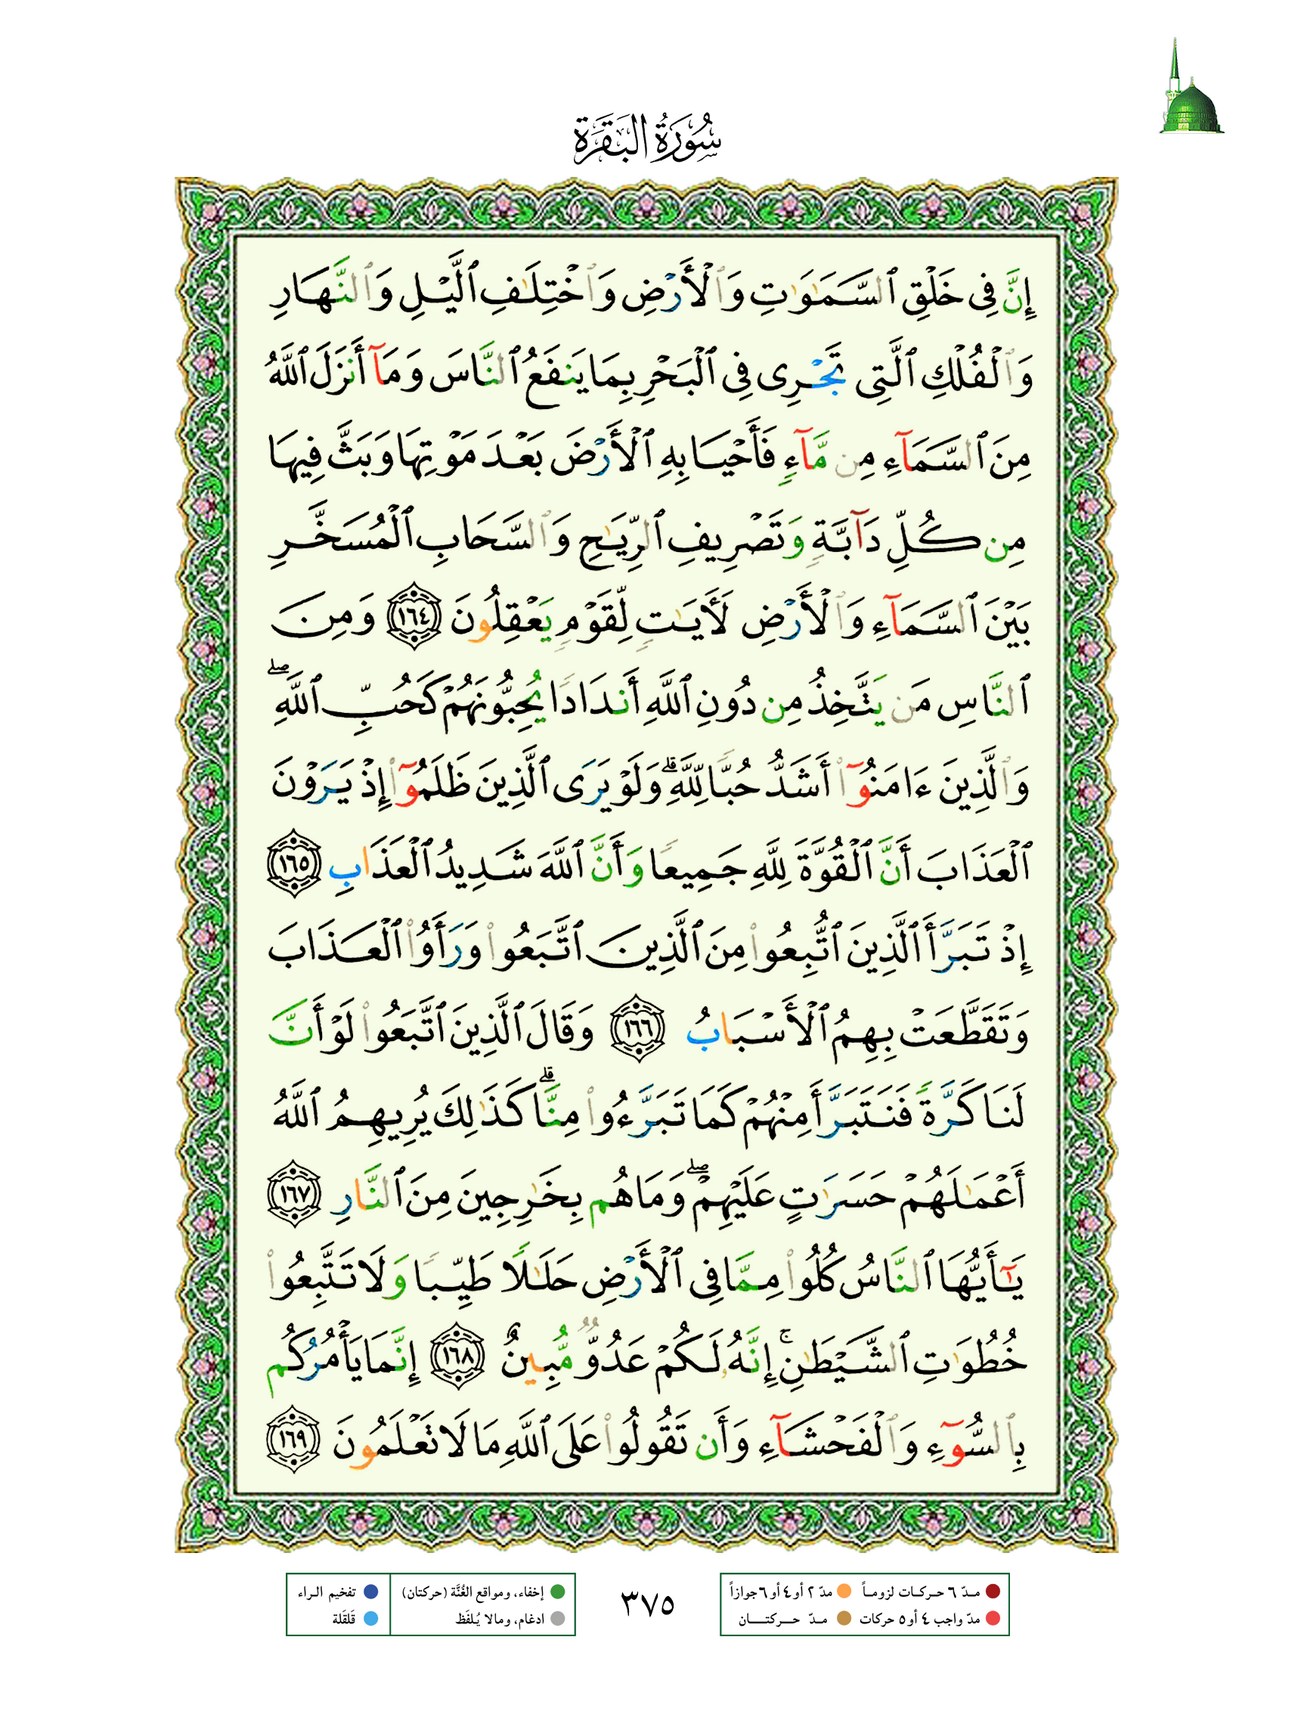 سُورَةُ البَقَرَة
إِنَّ فِى خَلْقِ ٱلسَّمَٰوَٰتِ وَٱلْأَرْضِ وَٱخْتِلَٰفِ ٱلَّيْلِ وَٱلنَّهَارِ
وَٱلْفُلْكِ ٱلَّتِى تَجْرِى فِى ٱلْبَحْرِ بِمَا يَنفَعُ ٱلنَّاسَ وَمَآ أَنزَلَ ٱللَّهُ
مِنَ ٱلسَّمَآءِ مِن مَّآءٍ فَأَحْيَا بِهِ ٱلْأَرْضَ بَعْدَ مَوْتِهَا وَبَثَّ فِيهَا
مِن كُلِّ دَآبَّةٍ وَتَصْرِيفِ ٱلرِّيَٰحِ وَٱلسَّحَابِ ٱلْمُسَخَّرِ
بَيْنَ ٱلسَّمَآءِ وَٱلْأَرْضِ لَأَيَٰتٍ لِّقَوْمٍ يَعْقِلُونَ ١٦٤ وَمِنَ
ٱلنَّاسِ مَن يَتَّخِذُ مِن دُونِ ٱللَّهِ أَندَادًا يُحِبُّونَهُمْ كَحُبِّ ٱللَّهِ ۖ
وَٱلَّذِينَ ءَامَنُوٓا۟ أَشَدُّ حُبًّا لِّلَّهِ ۗ وَلَوْ يَرَى ٱلَّذِينَ ظَلَمُوٓا۟ إِذْ يَرَوْنَ
ٱلْعَذَابَ أَنَّ ٱلْقُوَّةَ لِلَّهِ جَمِيعًا وَأَنَّ ٱللَّهَ شَدِيدُ ٱلْعَذَابِ ١٦٥
إِذْ تَبَرَّأَ ٱلَّذِينَ ٱتُّبِعُوا۟ مِنَ ٱلَّذِينَ ٱتَّبَعُوا۟ وَرَأَوُا۟ ٱلْعَذَابَ
وَتَقَطَّعَتْ بِهِمُ ٱلْأَسْبَابُ ١٦٦ وَقَالَ ٱلَّذِينَ ٱتَّبَعُوا۟ لَوْ أَنَّ
لَنَا كَرَّةً فَنَتَبَرَّأَ مِنْهُمْ كَمَا تَبَرَّءُوا۟ مِنَّا ۗ كَذَٰلِكَ يُرِيهِمُ ٱللَّهُ
أَعْمَٰلَهُمْ حَسَرَٰتٍ عَلَيْهِمْ ۖ وَمَا هُم بِخَٰرِجِينَ مِنَ ٱلنَّارِ ١٦٧
يَٰٓأَيُّهَا ٱلنَّاسُ كُلُوا۟ مِمَّا فِى ٱلْأَرْضِ حَلَٰلًا طَيِّبًا وَلَا تَتَّبِعُوا۟
خُطُوَٰتِ ٱلشَّيْطَٰنِ ۚ إِنَّهُۥ لَكُمْ عَدُوٌّ مُّبِينٌ ١٦٨ إِنَّمَا يَأْمُرُكُم
بِٱلسُّوٓءِ وَٱلْفَحْشَآءِ وَأَن تَقُولُوا۟ عَلَى ٱللَّهِ مَا لَا تَعْلَمُونَ ١٦٩
مـدّ ٦ حـركـات لزومـاً مدّ ٢ أو ٤ أو ٦ جوازاً
مدّ واجب ٤ أو ٥ حركات مـدّ حـــركتـــــان
٣٧٥
إخفاء، ومواقع الغُنَّة (حركتان) تفخيم الـراء
ادغام، ومالا يُـلفَظ قَلقَلة